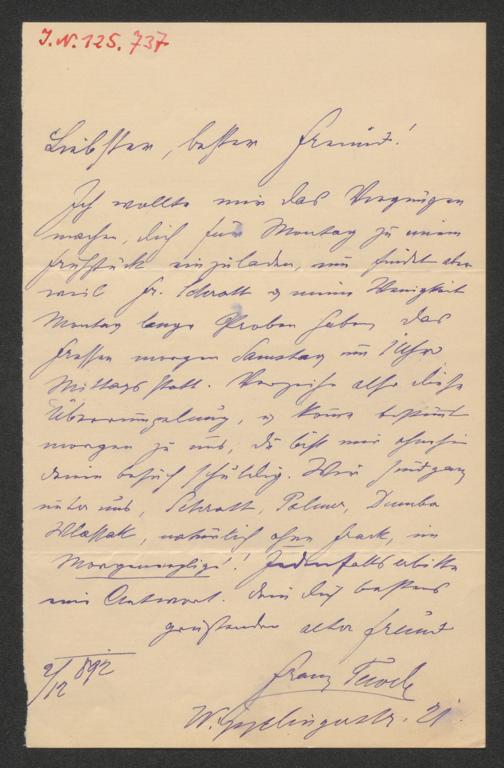 J.N. 125.737
Liebster, bester Freund!
Ich wollte mir das Vergnügen
machen, dich für Montag zu einem
Frühstück einzuladen, nun findet aber
weil Fr. Schratt & meine Wenigkeit
Montag lange Proben haben, das
Fressen morgen Samstag um 1 Uhr
Mittags statt. Verzeihe also diese
Überrumpelung, & komme bestimmt
morgen zu uns, du bist mir ohnehin
deinen Besuch schuldig. Wir sind ganz
unter uns, Schratt, Palmer, Dumba
Wlassak, natürlich ohne Frack, im
Morgennegligé! Jedenfalls erbitte
mir Antwort. Dein dich bestens
grüßender alter Freund
Franz Tewele
2/12 892
W. Gumpendorferstr. 21.